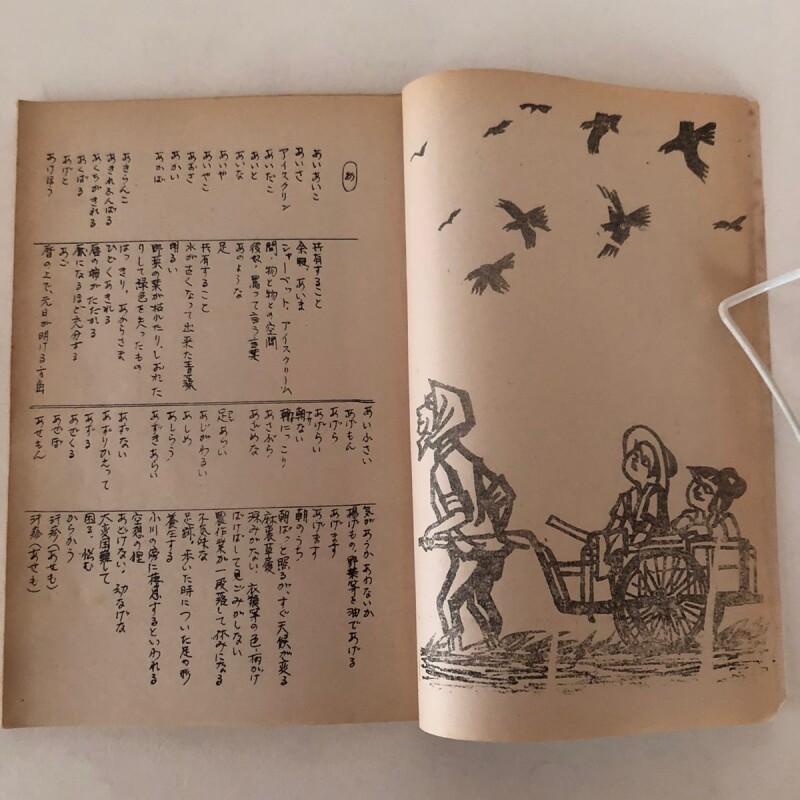 あ
あいあいこ
共有すること
あいさ
余暇、あいま
アイスクリン
シャーベット、アイスクリーム
あいだこ
間、物と物との空間
あいと
彼奴、罵って言う言葉
あいな
あのような
あいや
足
あいやこ
共有すること
あおざ
氷が古くなって出来た青藻
あかい
明るい
あかば
野菜の葉が枯れたり、しおれた
りして緑色を失ったもの
あきらんこ
はっきり、あからさま
ひどくあきれる
あくちがきれる
唇の横がただれる
あくばる
厭になるほど充分する
あげと
あご
あけほう
暦の上で、元日が明ける方向
あいふさい
気があうかあわないか
あげもん
揚げもの、野菜等を油であげる
あげら
あげます
あげらい
あげます
朝ない
朝のうち
朝にっこり
朝ぱっと照るが、すぐ天候が変る
あさぶら
麻裏草履
あざめな
深みがない、衣類等の色・柄が
けばけばして見ごみがしない
足あらい
農作業が一段落して休みになる
あじがわるい
不気味な
あしめ
足跡、歩いた時についた足の形
あしらう
養生する
あずきあらい
小川の傍に棲息するといわれる
空想の狸
あずない
あどけない、幼なげな
あずりかえって
大変困難して
あずる
困る、悩む
あぜくる
からかう
あせぼ
汗疹(あせも)
あせもん
汗疹(あせも)